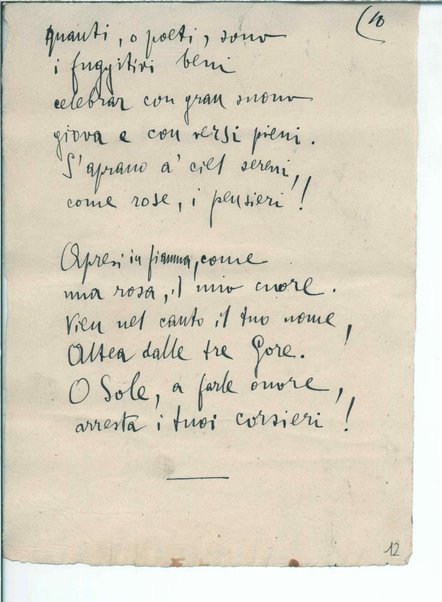 (10
quanti, o poeti, sono
i fuggitivi beni
celebrar con gran suono
giova e con versi pieni.
S'aprano a' ciel sereni,
come rose, i pensieri!
Apresi in fiamma, come
una rosa, il mio cuore.
Vien nel canto il tuo nome,
Altea dalle tre Gore.
O Sole, a farle onore,
arresta i tuoi corsieri!
12